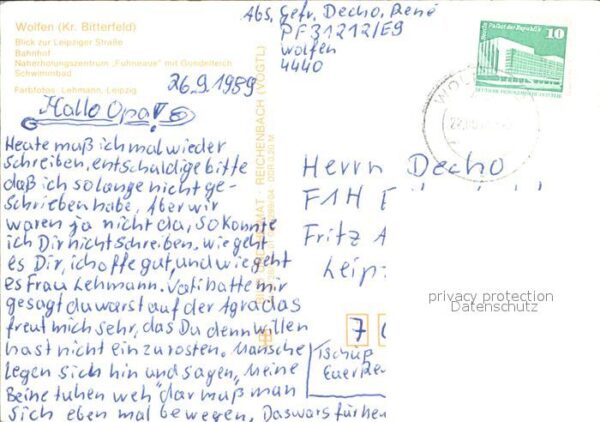 Wolfen (Kr. Bitterfeld)
Blick zur Leipziger Straße
Bahnhof
Naherholungszentrum „Fuhneaue" mit Gondelteich
Schwimmbad
Farbfotos: Lehmann, Leipzig
Abs. Gefr. Decho, René
PF 31212/E9
Wolfen
4440
Berlin, Palast der Republik
10
DDR
26.9.1989
Hallo Opa!
Heute muß ich mal wieder
schreiben, entschuldige bitte
daß ich so lange nicht ge-
schrieben habe, Aber wir
waren ja nicht da, so konnte
ich Dir nicht schreiben. wie geht
es Dir, ich offe gut, und wie geht
es Frau Lehmann. Vati hatte mir
gesagt du warst auf der Agra das
freut mich sehr, das Du denn willen
hast nicht ein zu rosten. Mansche
legen sich hin und sagen, "Meine
Beine tuhen weh" dar muß man
sich eben mal bewegen, Das war's für heu
BILD UND HEIMAT REICHENBACH (VOGTL)
Herrn Decho
FAH
Fritz A
Leip
7
Tschüß
Euer Re
privacy protection
Datenschutz